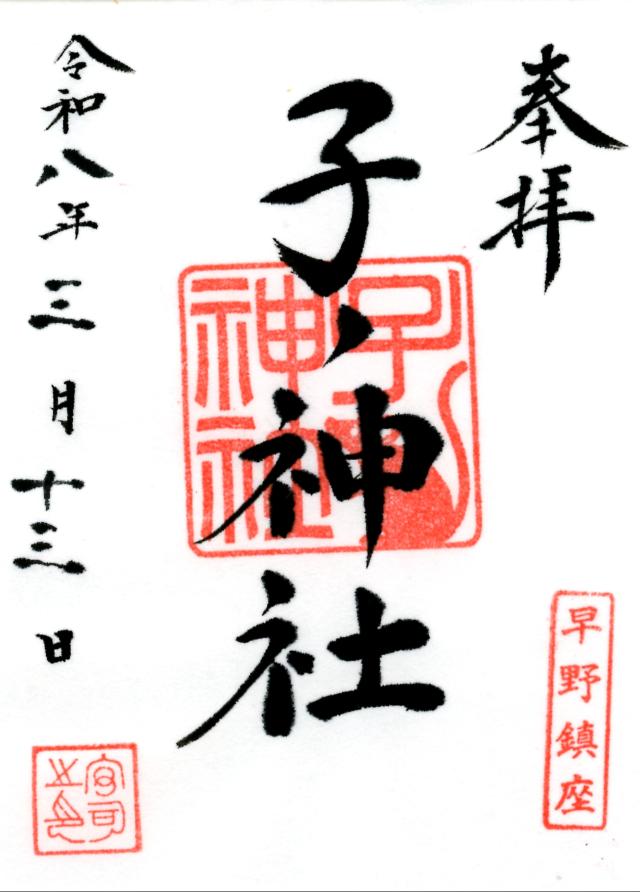 奉拝
早野鎮座
子ノ神社
子ノ神社
令和八年三月十三日
宮司之印